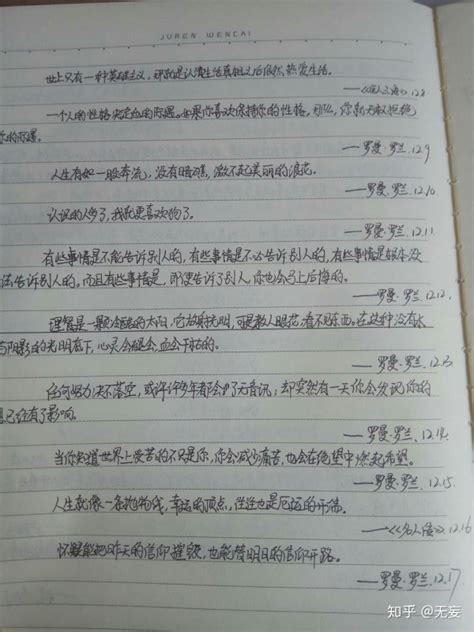 JUREN WENCAI
世上只有一种英雄主义，那就是认清生活真相之后依然热爱生活。
——《名人传》12.8
一个人的性格决定他的际遇。如果你喜欢保持你的性格，那么，你就无权拒绝
你的际遇。
——罗曼·罗兰.12.9
人生有如一股奔流，没有暗礁，激不起美丽的浪花。
——罗曼·罗兰.12.10
认识的人多了，我就更喜欢狗了。
——罗曼·罗兰.12.11
有些事情是不能告诉别人的，有些事情是不必告诉别人的，有些事情是根本没
法告诉别人的，而且有些事情是，即使告诉了别人，你也会马上后悔的。
——罗曼·罗兰.12.12.
理智是一颗冷酷的太阳，它放射光明，可是教人眼花，看不见东西。在这种没有水
与阴影的光明底下，心灵会褪色，血会干枯的。
——罗曼·罗兰.12.13
任何努力决不落空，或许许多年都会杳无音讯，却突然有一天你会发现你的
思已经有了影响。
——罗曼·罗兰.12.14.
当你知道世界上受苦的不只是你，你会减少痛苦，也会在绝望中燃起希望。
——罗曼·罗兰.12.15.
人生就像一条抛物线，幸运的顶点，往往也是厄运的开端。
——《名人传》.12.16
怀疑能把昨天的信仰摧毁，也能替明日的信仰开路。
——罗曼·罗兰.12.17
知乎 @无妄